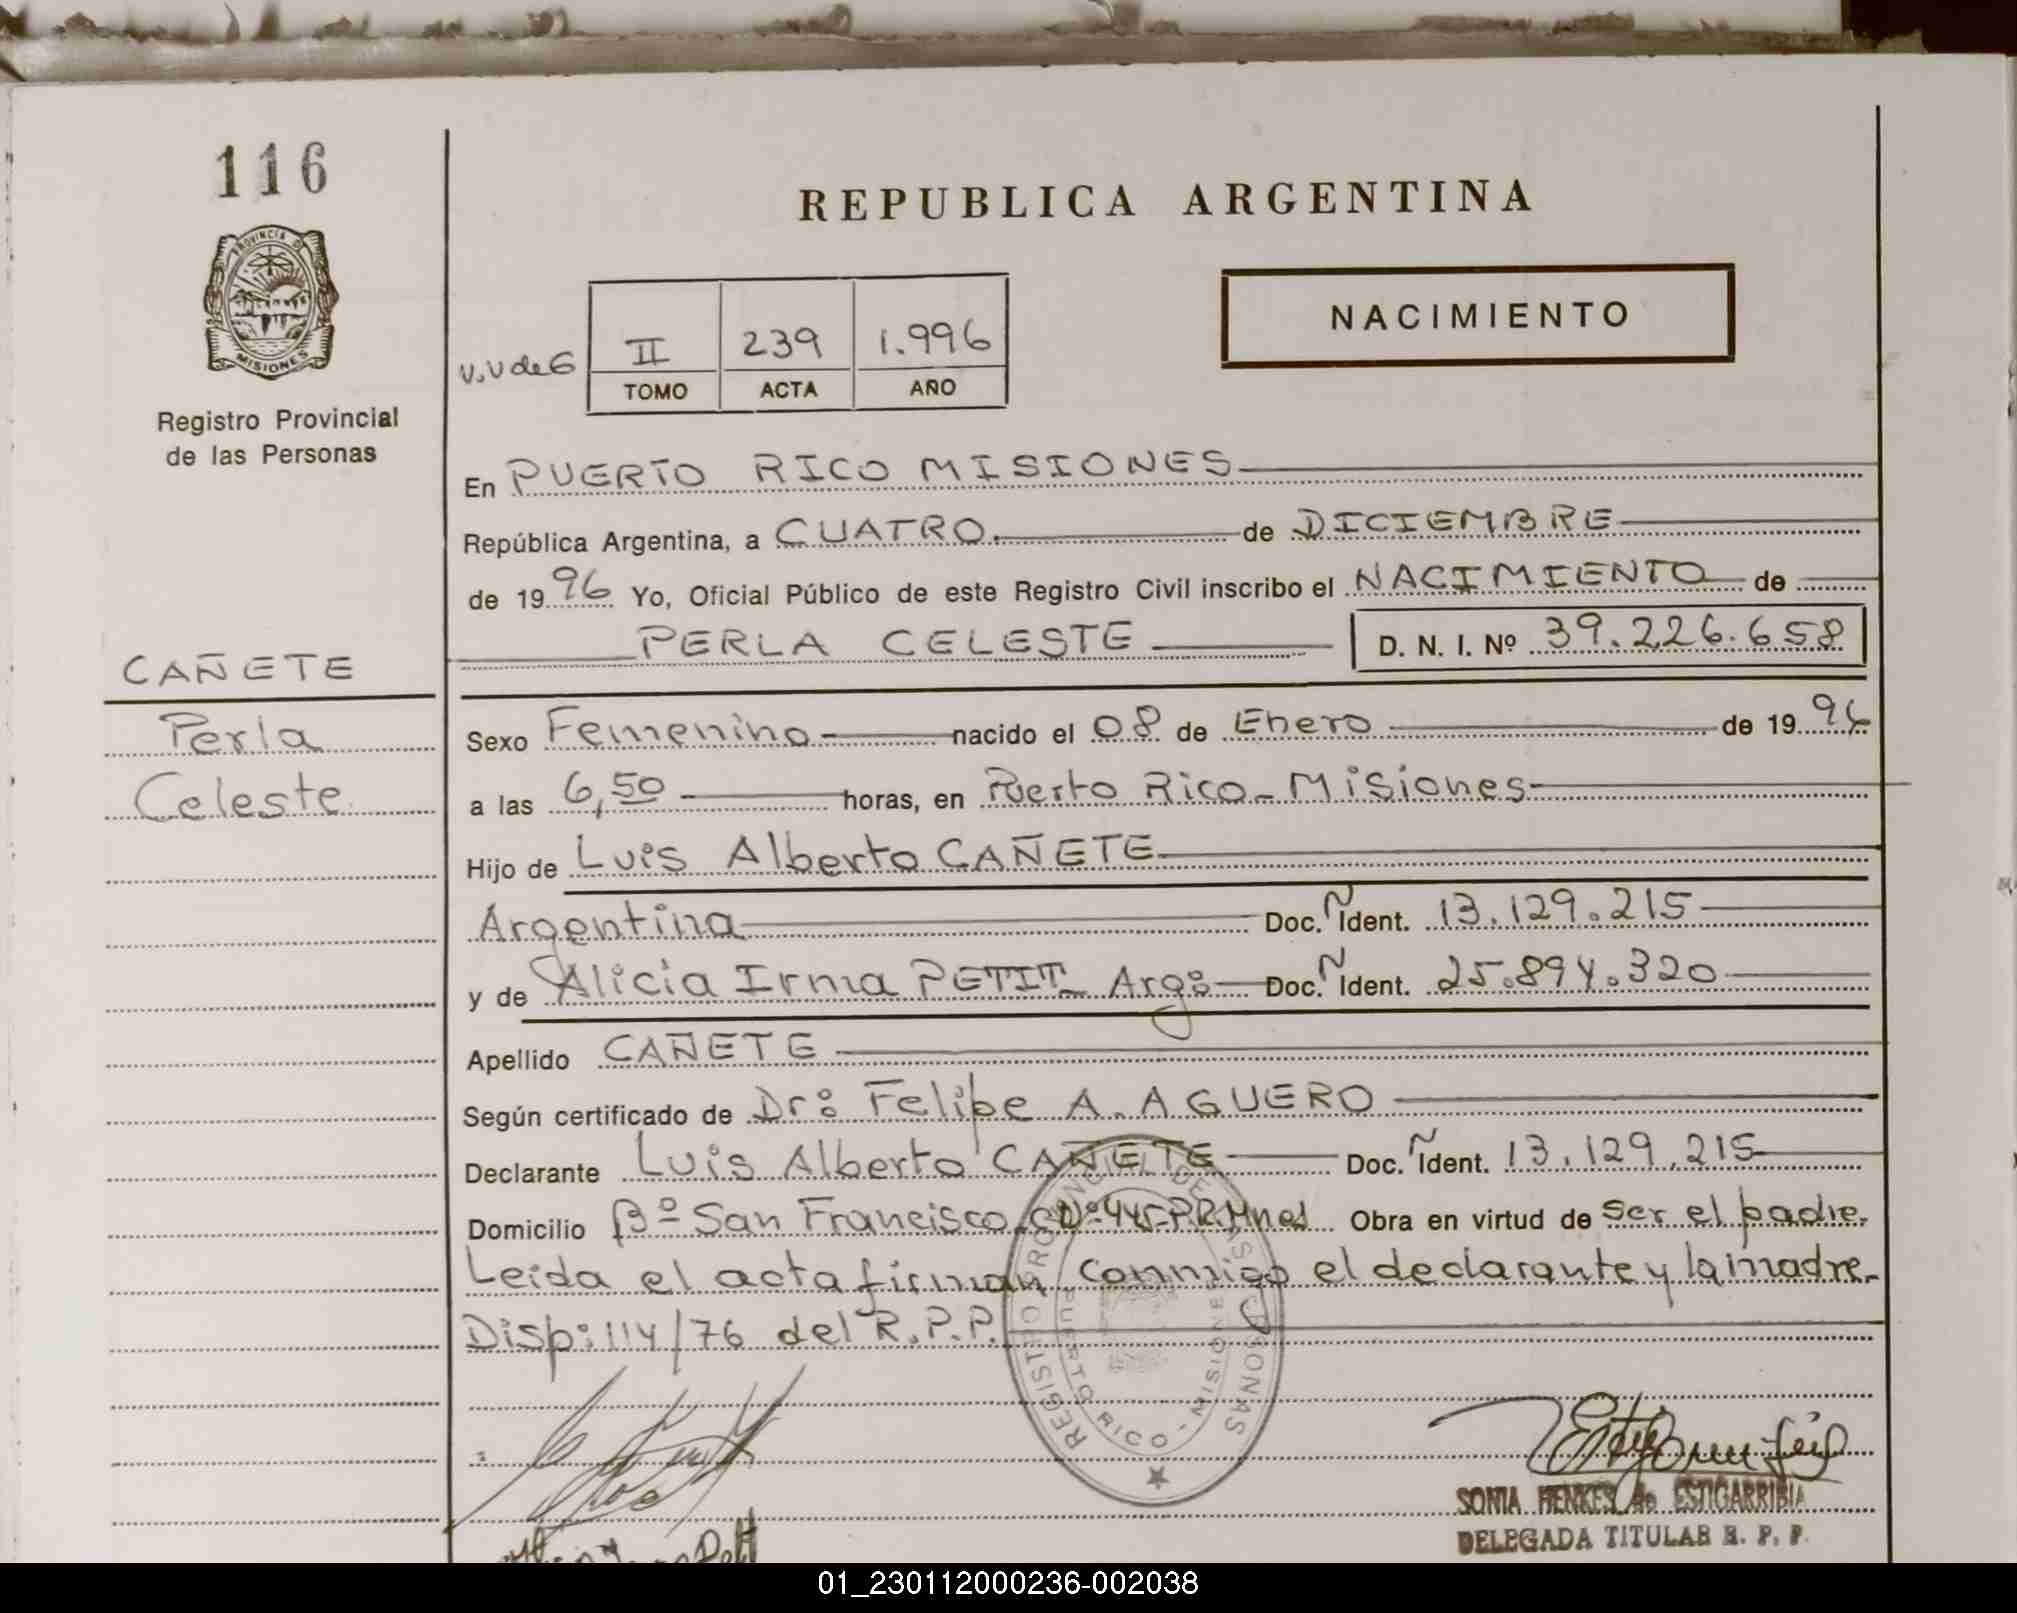 116
REPUBLICA ARGENTINA
PROVINCIA DE
MISIONES
Registro Provincial
de las Personas
NACIMIENTO
II 239 1.996
TOMO ACTA AÑO
En PUERTO RICO MISIONES
República Argentina, a CUATRO. de DICIEMBRE
de 19 96 Yo, Oficial Público de este Registro Civil inscribo el NACIMIENTO de
PERLA CELESTE D. N. I. Nº 39.226.658
CAÑETE
Perla
Celeste
Sexo Femenino nacido el 08 de Enero de 19 96
a las 6,50 horas, en Puerto Rico - Misiones
Hijo de Luis Alberto CAÑETE
Argentina Doc. Ident. 13.129.215
y de Alicia Irma PETIT - Argº Doc. Ident. 25.894.320
Apellido CAÑETE
Según certificado de Drº Felipe A. AGUERO
Declarante Luis Alberto CAÑETE Doc. Ident. 13.129.215
Domicilio Bº San Francisco Nº 445 - P.R. Mnes Obra en virtud de ser el padre.
Leida el acta firman conmigo el declarante y la madre.
Disp: 114/76 del R.P.P.
REGISTRO PROVINCIAL DE LAS PERSONAS
PUERTO RICO - MISIONES
SONIA HENKES de ESTIGARRIBIA
DELEGADA TITULAR R. P. P.
01_230112000236-002038